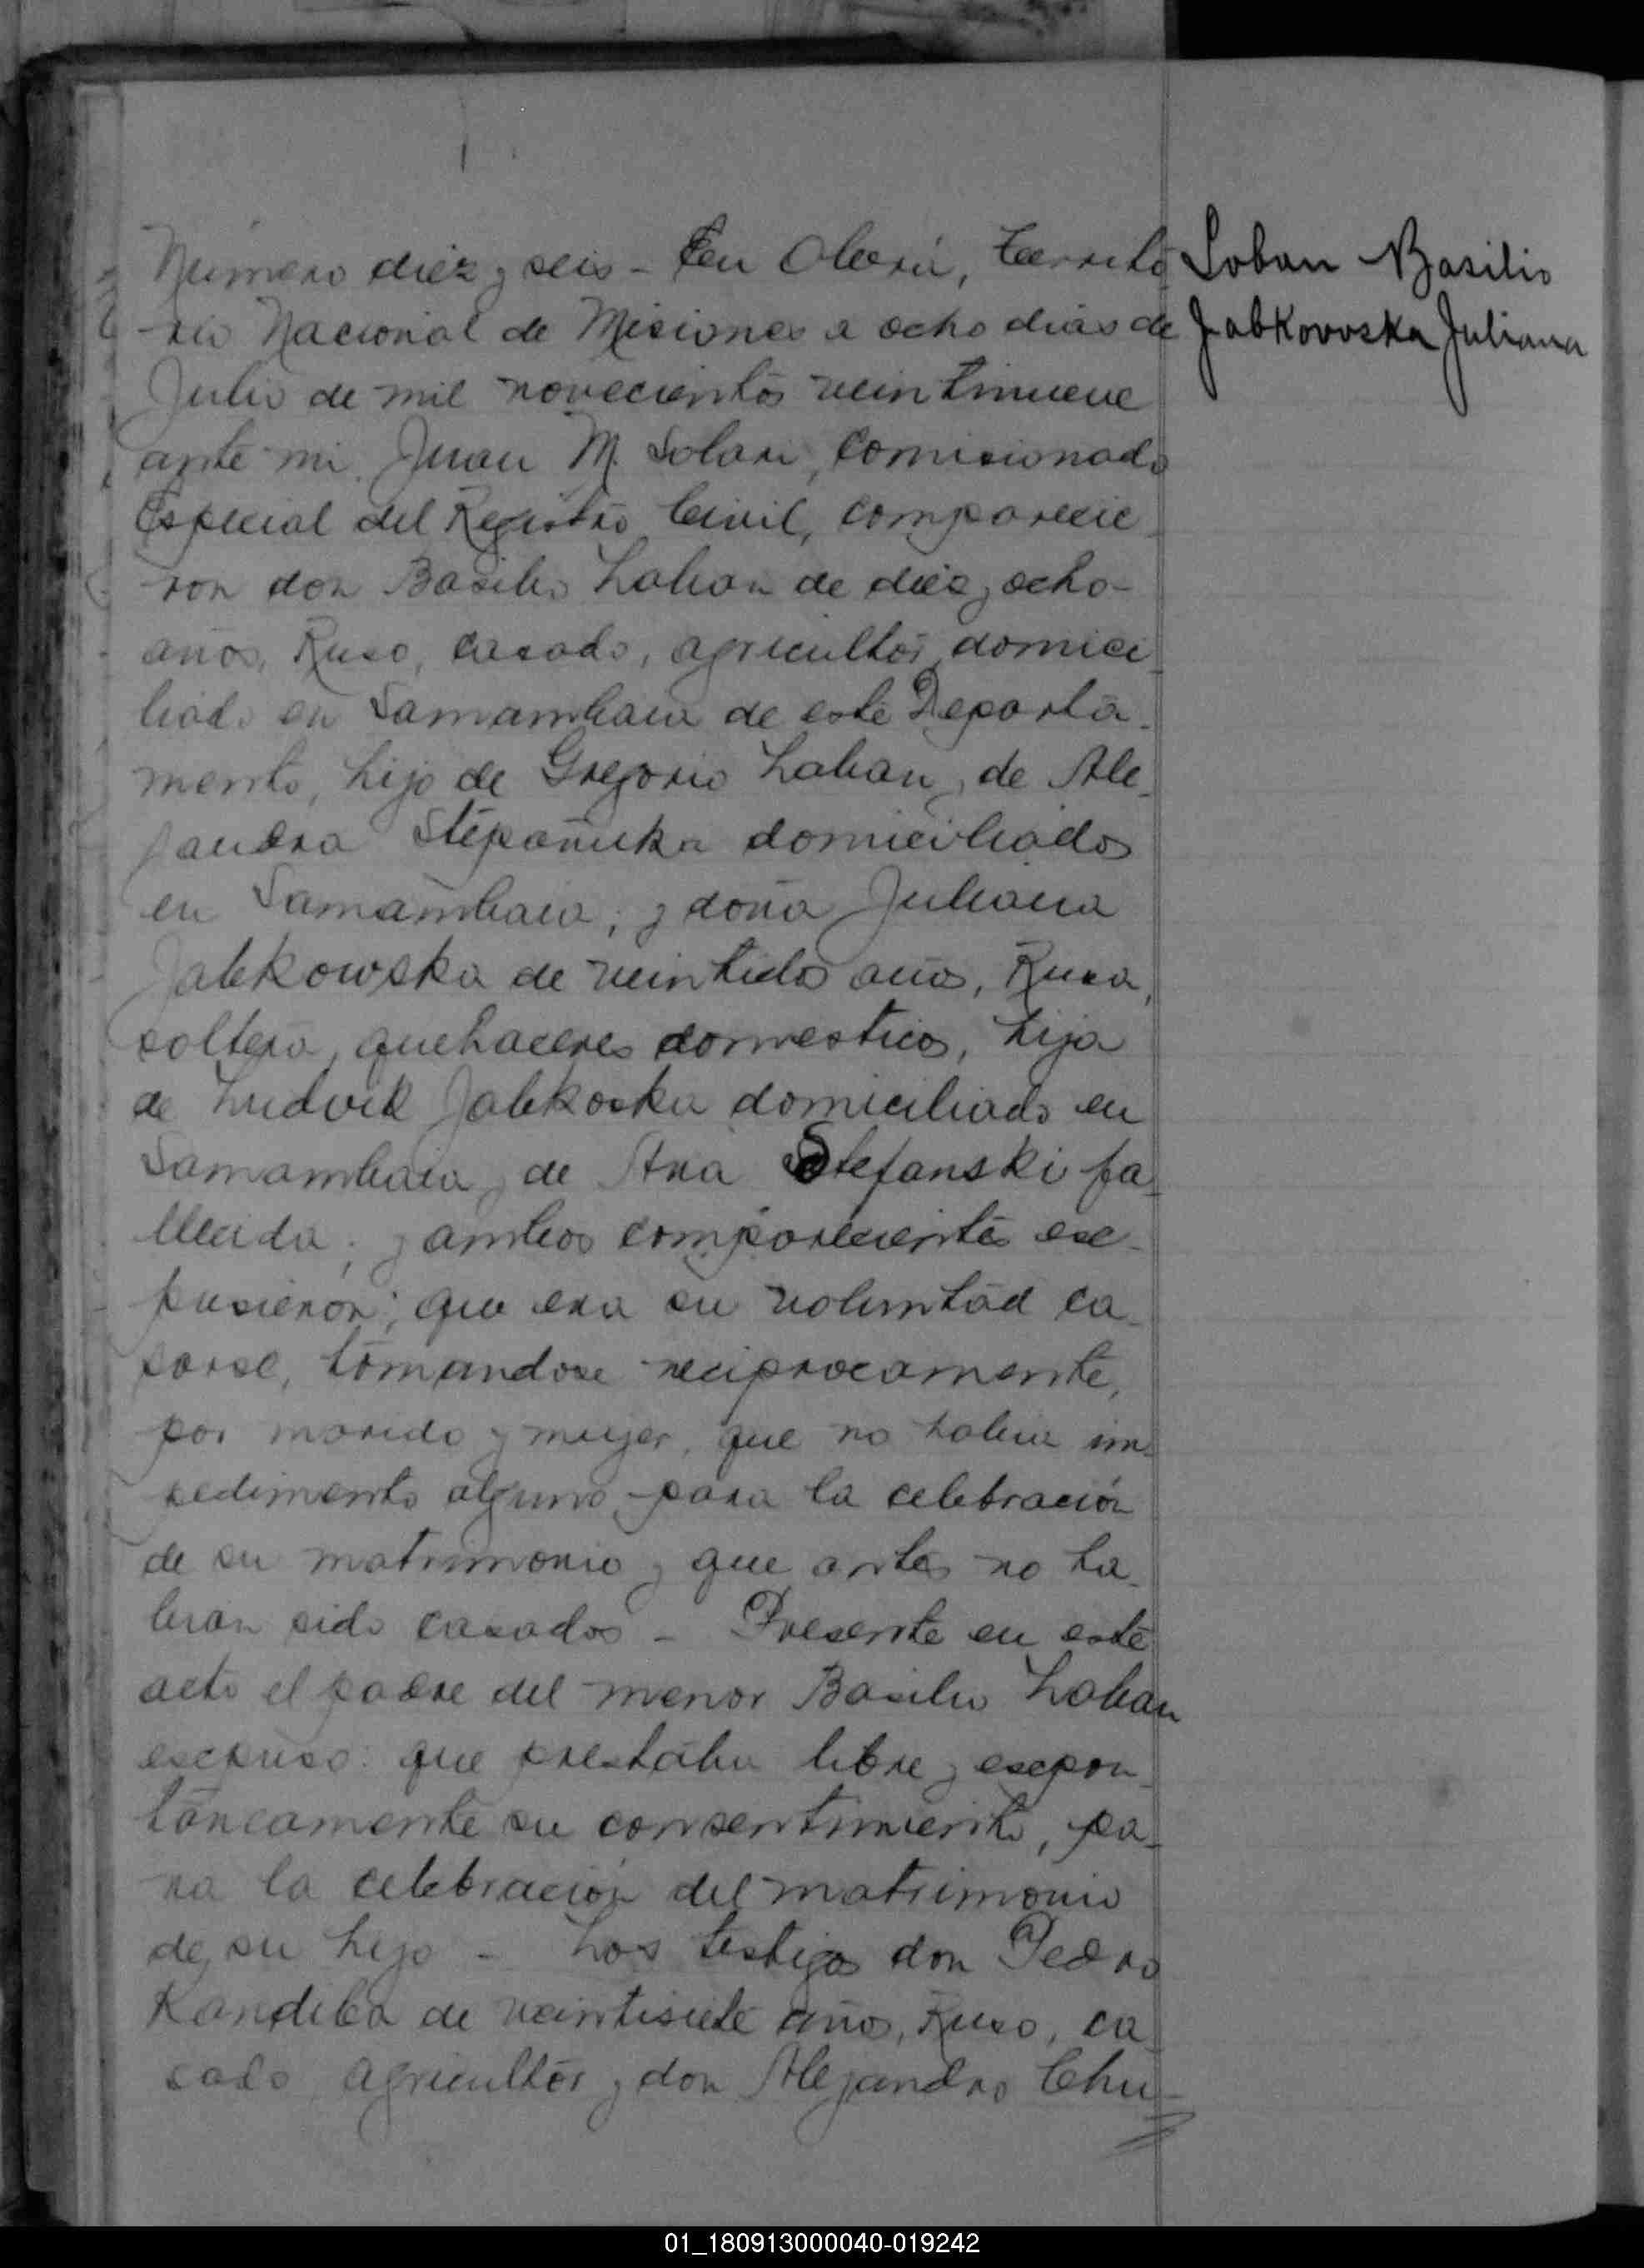 Número diez y seis - En Oberá, territo
Loban Basilio
rio Nacional de Misiones a ocho dias de
Jabkovoska Juliana
Julio de mil novecientos veintinueve
ante mi, Juan M. Solari, Comisionado
Especial del Registro Civil, comparecie_
ron don Basilio Loban de diez y ocho-
años, Ruso, casado, agricultor, domici_
liado en Samambaia de este Departa_
mento, hijo de Gregorio Loban y de Ale_
jandra Stepañuka domiciliados
en Samambaia; y doña Juliana
Jabkowska de veintidos años, Rusa,
soltera, quehaceres domesticos, hija
de Ludvik Jabkoska domiciliado en
Samambaia y de Ana Stefanski fa_
llecida; y ambos comparecientes ex_
pusieron; que era su voluntad ca_
sarse, tomandose reciprocamente,
por marido y mujer, que no habia im_
pedimento alguno para la celebración
de su matrimonio y que antes no ha_
bian sido casados - Presente en este
acto el padre del menor Basilio Loban
expuso: que prestaba libre y expon_
táneamente su consentimiento, pa_
ra la celebración del matrimonio
de su hijo - Los testigos don Pedro
Kandiba de veintisiete años, Ruso, ca_
sado, agricultor y don Alejandro Chu_
01_180913000040-019242